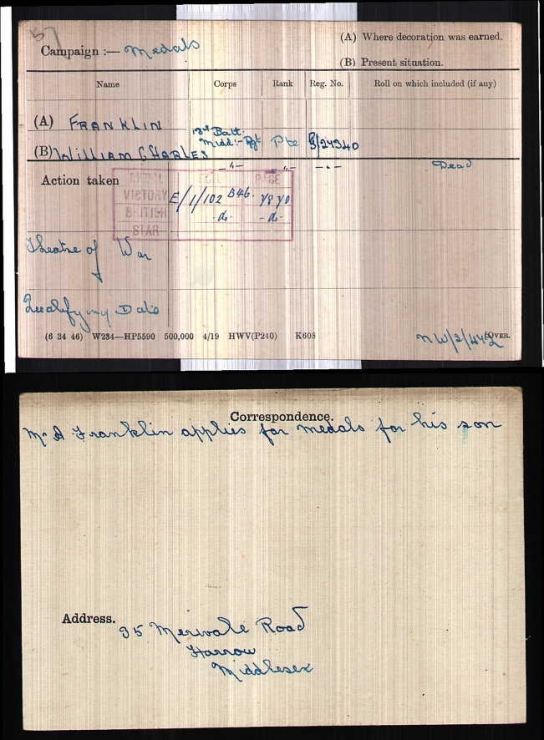 Campaign :— Medals
(A) Where decoration was earned.
(B) Present situation.
Name Corps Rank Reg. No. Roll on which included (if any)
(A) FRANKLIN
(B) WILLIAM CHARLES Midd: Pte G/24940
-"- -"- -"- Dead
Action taken
VICTORY
& BRITISH
WAR
E/1/102 B46
-do- -do-
Theatre of War
Qualifying Date
(6 34 46) W234—HP5590 500,000 4/19 HWV(P240) K608
NW/2/ OVER.
Correspondence.
Mr A Franklin applies for medals for his son
Address. 95 Merivale Road
Harrow
Middlesex